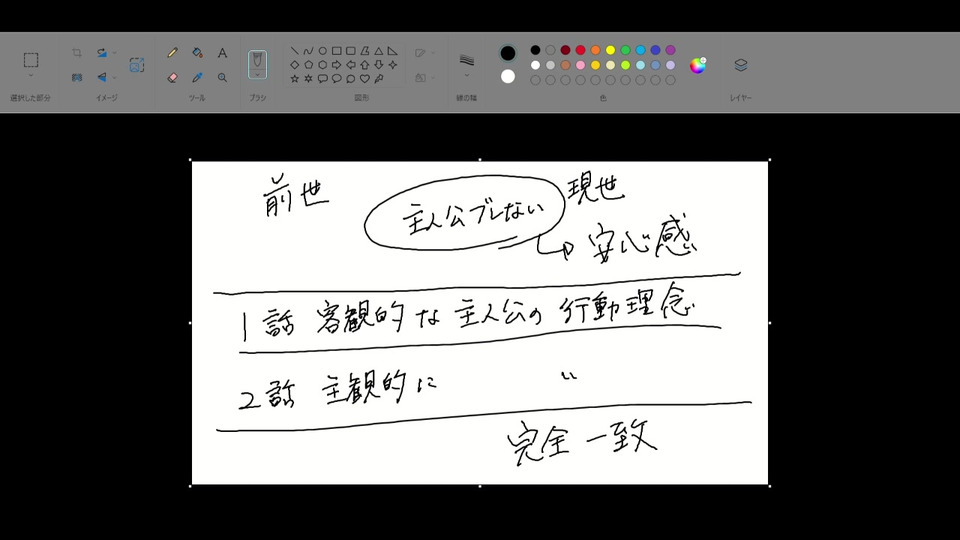 選択した部分
イメージ
ツール
ブラシ
図形
線の幅
色
レイヤー
前世
主人公ブレない
現世
→安心感
1話 客観的な主人公の行動理念
2話 主観的に 〃
完全一致